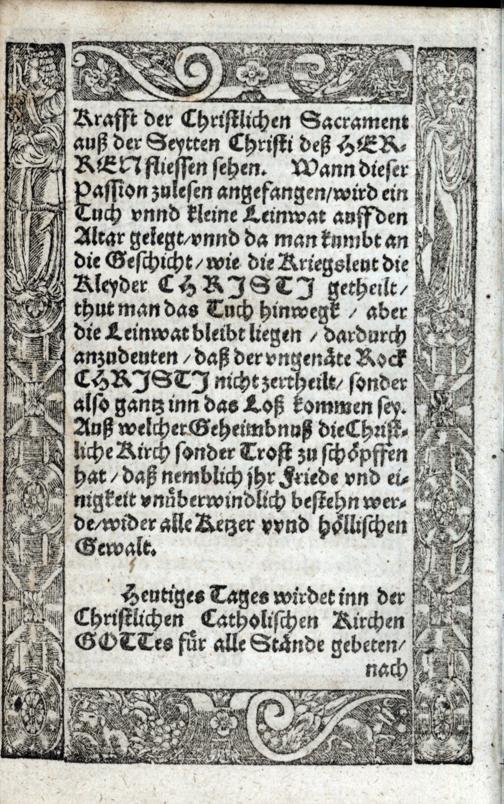 Krafft der Christlichen Sacrament
auß der Seytten Christi deß HER-
REN fliessen sehen. Wann dieser
Passion zulesen angefangen/wird ein
Tuch vnnd kleine Leinwat auff den
Altar gelegt/vnnd da man kumbt an
die Geschicht/wie die Kriegsleut die
Kleyder CHRISTI getheilt/
thut man das Tuch hinwegk/ aber
die Leinwat bleibt liegen / dardurch
anzudeuten/daß der vngenäte Rock
CHRISTI nicht zertheilt/ sonder
also gantz inn das Loß kommen sey.
Auß welcher Geheimbnuß die Christ-
liche Kirch sonder Trost zu schöpffen
hat/daß nemblich jhr Friede vnd ei-
nigkeit vnüberwindlich bestehn wer-
de/wider alle Ketzer vvnd höllischen
Gewalt.
Heutiges Tages wirdet inn der
Christlichen Catholischen Kirchen
GOTTes für alle Stände gebeten/
nach